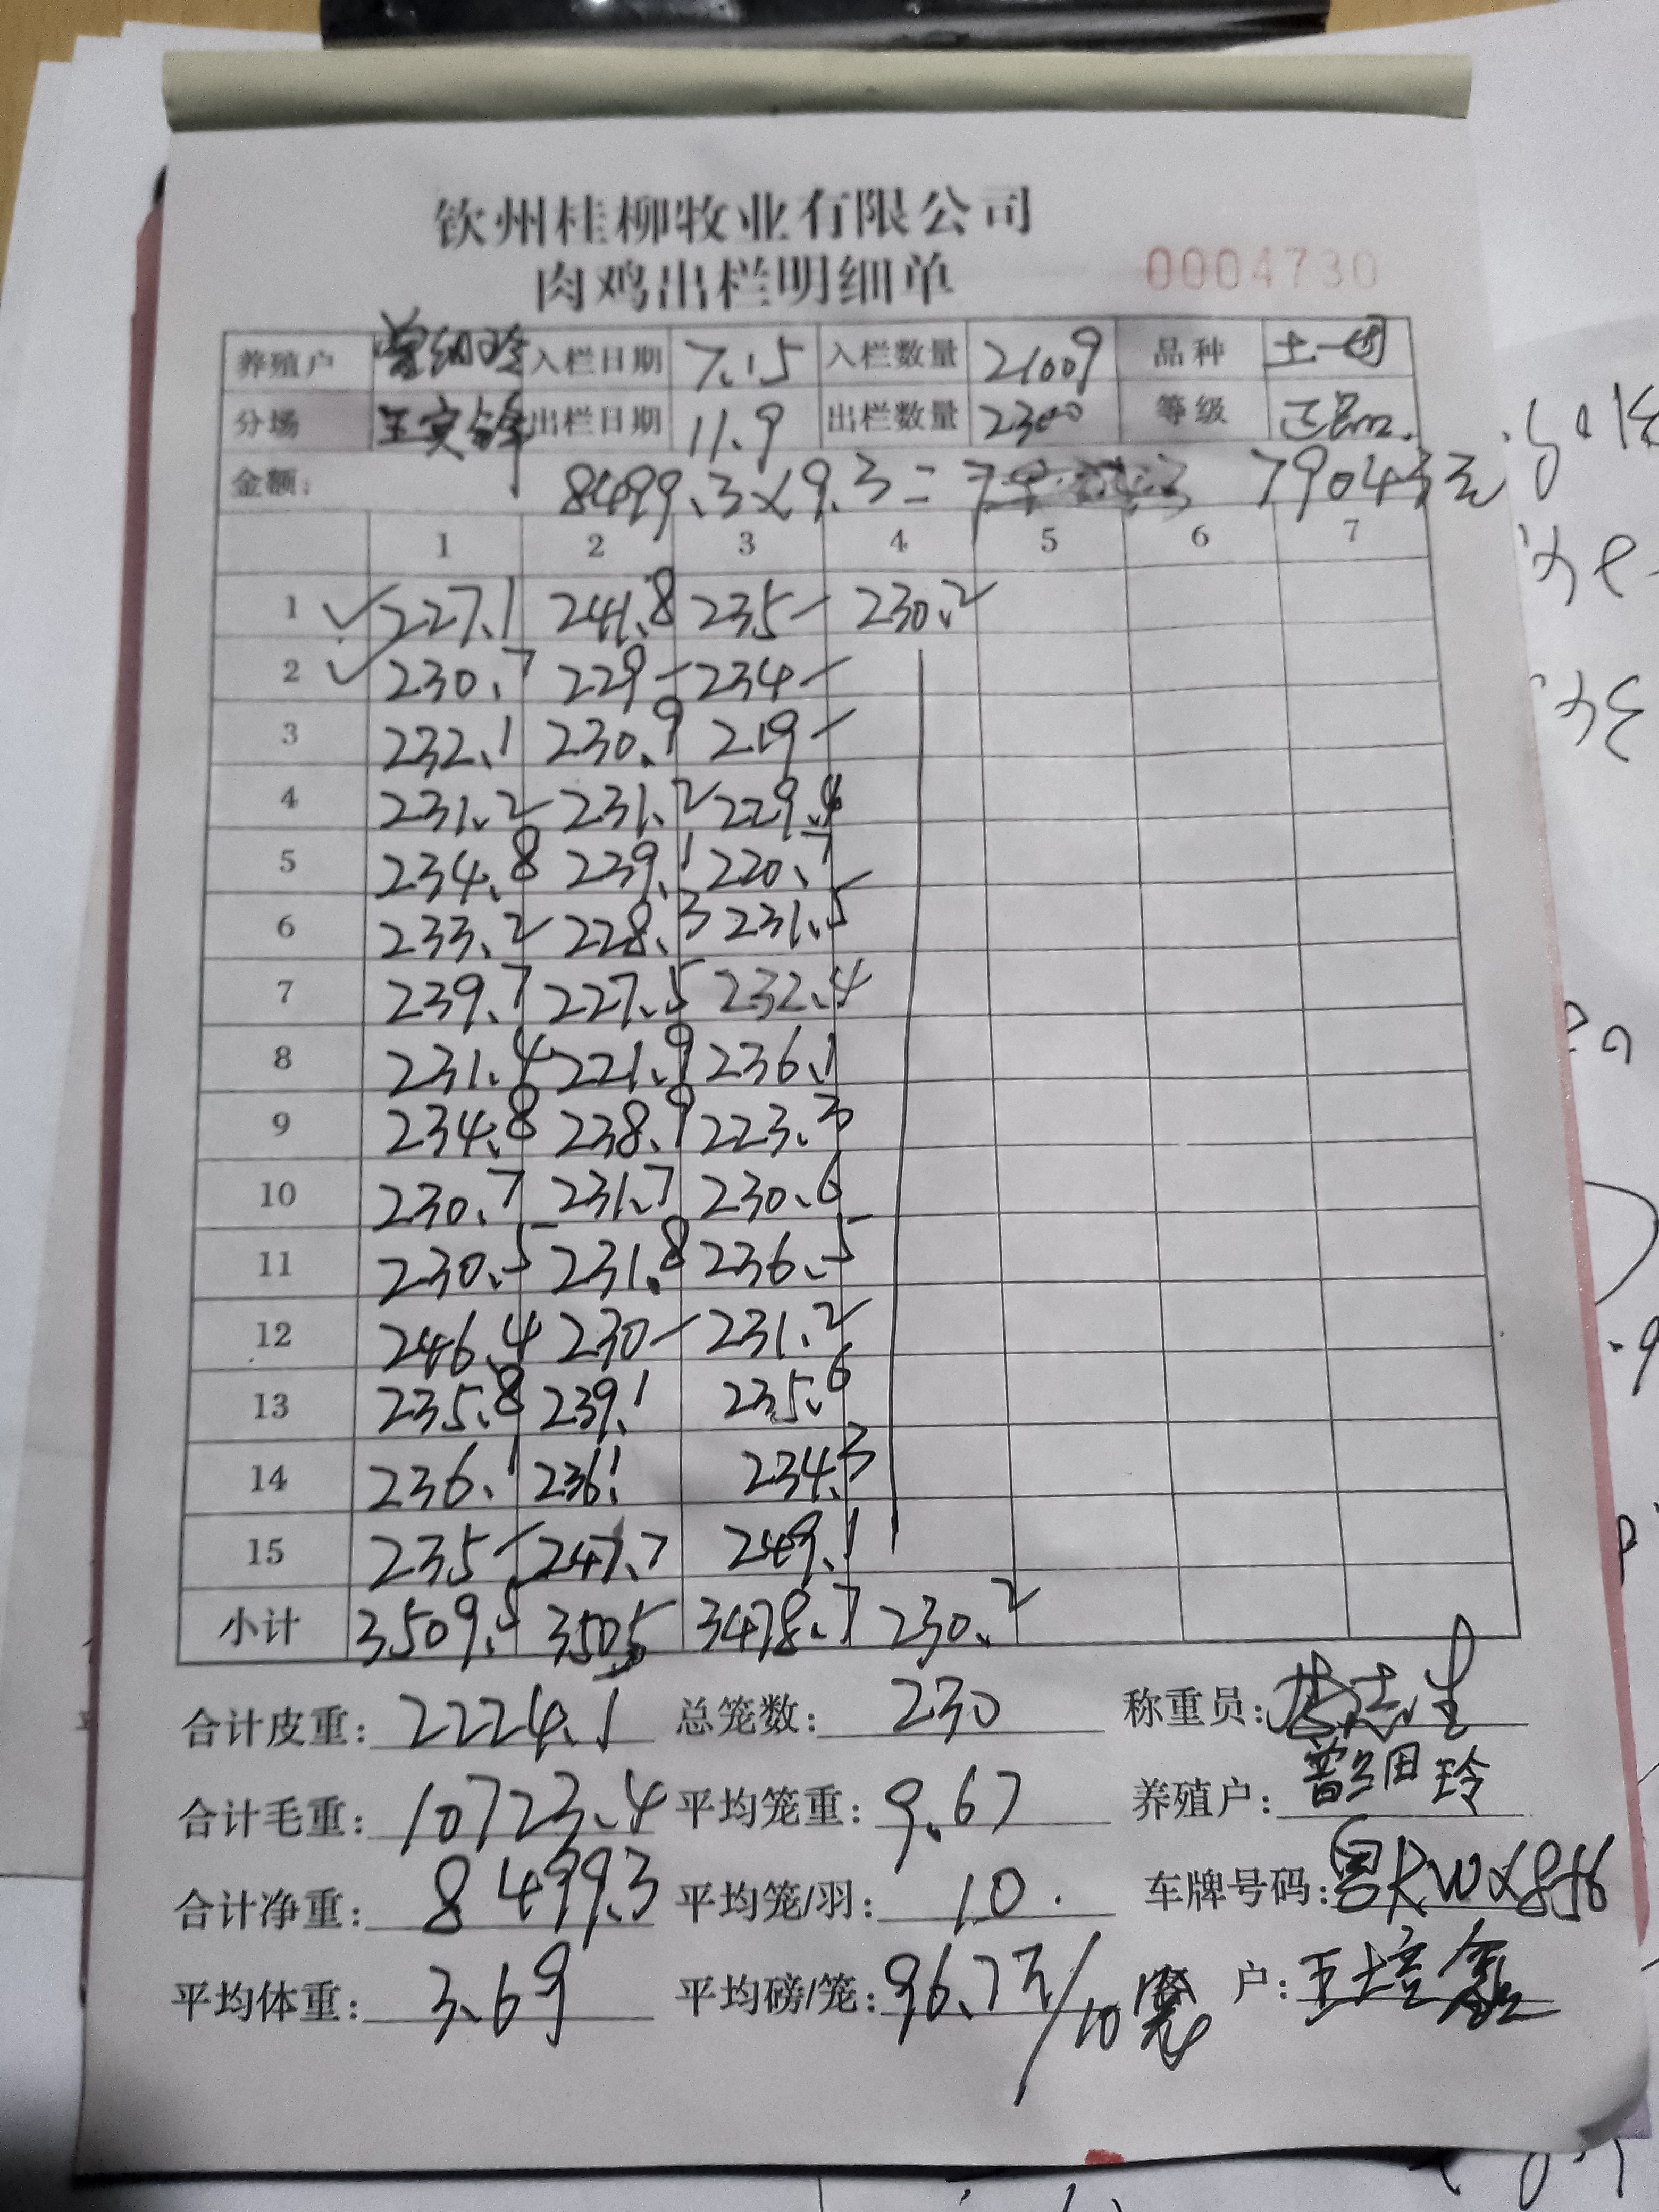 钦州桂柳牧业有限公司
肉鸡出栏明细单
0004730
养殖户 曾细玲 入栏日期 7.15 入栏数量 21009 品种 土一
分场 王安锋 出栏日期 11.9 出栏数量 2300 等级 正品.
金额: 8499.3×9.3= 79043元
1 2 3 4 5 6 7
1 ✓ 227.1 241.8 235- 230.2
2 ✓ 230.7 229- 234-
3 232.1 230.9 219-
4 231.2 231.2 229.4
5 234.8 239.1 220.7
6 233.2 228.3 231.5
7 239.7 227.5 232.4
8 231.4 221.9 236.1
9 234.8 238.9 223.3
10 230.7 231.7 230.6
11 230.5 231.8 236.5
12 246.4 230- 231.2
13 235.8 239.1 235.6
14 236.1 236.1 234.3
15 235- 247.7 249.1
小计 3509.5 3505 3478.7 230.2
合计皮重: 2224.1 总笼数: 230 称重员:
合计毛重: 10723.4 平均笼重: 9.67 养殖户: 曾细玲
合计净重: 8499.3 平均笼/羽: 10. 车牌号码:
平均体重: 3.69 平均磅/笼: 96.7斤/10笼 客户: 王培鑫